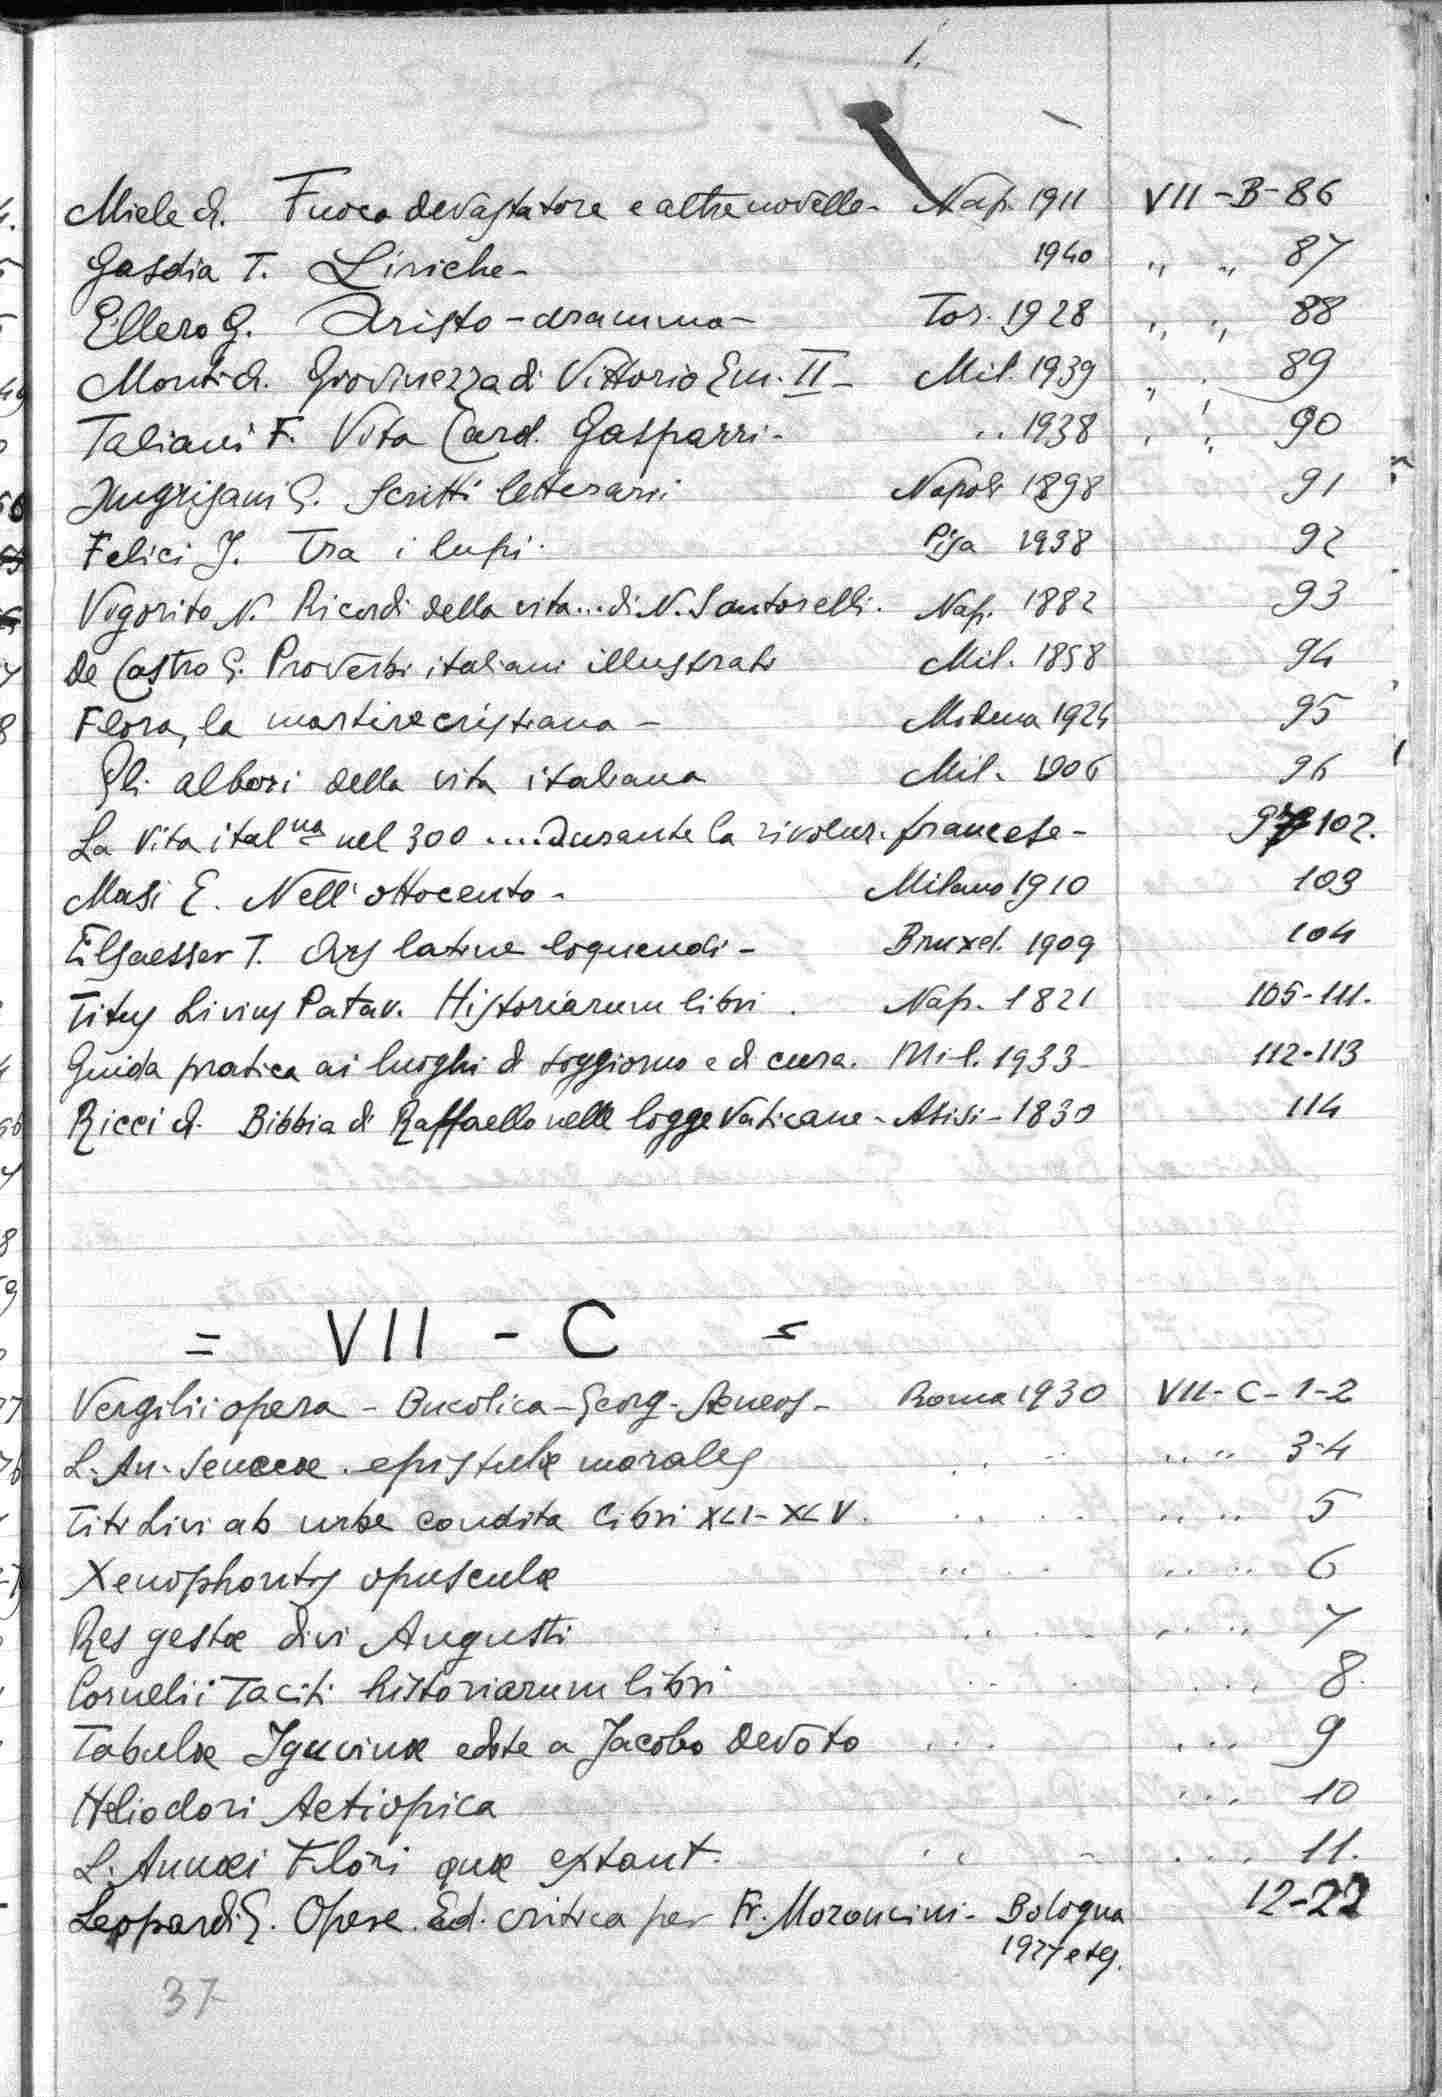 1.
Miele A. Fuoco devastatore e altre novelle - Nap. 1911 VII - B - 86
Gasdia T. Liriche - 1940 " " 87
Ellero G. Aristo - dramma - Tor. 1928 " " 88
Monti A. Giovinezza di Vittorio Em. II - Mil. 1939 " " 89
Taliani F. Vita Card. Gasparri - " 1938 " " 90
Scritti letterari Napoli 1898 91
Felici J. Tra i lupi. Pisa 1938 92
Vigorito N. Ricordi della vita... di N. Santorelli. Nap. 1882 93
De Castro G. Proverbi italiani illustrati Mil. 1858 94
Flora, la martire cristiana - Modena 1924 95
Gli albori della vita italiana Mil. 1906 96
La Vita ital.na nel 300 .... durante la rivoluz. francese - 97-102.
Masi E. Nell'ottocento - Milano 1910 103
Elsaesser T. Ars latine loquendi - Bruxel. 1909 104
Titus Livius Patav. Historiarum libri . Nap. 1821 105-111.
Guida pratica ai luoghi di soggiorno e di cura. Mil. 1933 - 112-113
Ricci A. Bibbia di Raffaello nelle logge Vaticane - Assisi - 1830 114
= VII - C =
Vergilii opera - Bucolica - Georg - Aeneos - Roma 1930 VII - C - 1-2
L. An. Senecæ epistulæ morales " " " " 3-4
Titi Livi ab urbe condita libri XLI - XLV. " " " " 5
Xenophontis opuscula " " " " 6
Res gestæ divi Augusti " " " " 7
Cornelii Taciti historiarum libri " " " " 8.
Tabulæ Iguvinæ edite a Jacobo Devoto " " " " 9
Heliodori Aetiopica " " 10
L. Annæi Flori quæ extant. " " " " 11.
Leopardi G. Opere. Ed. critica per Fr. Moroncini - Bologna 12-22
1927 e sg.
37-